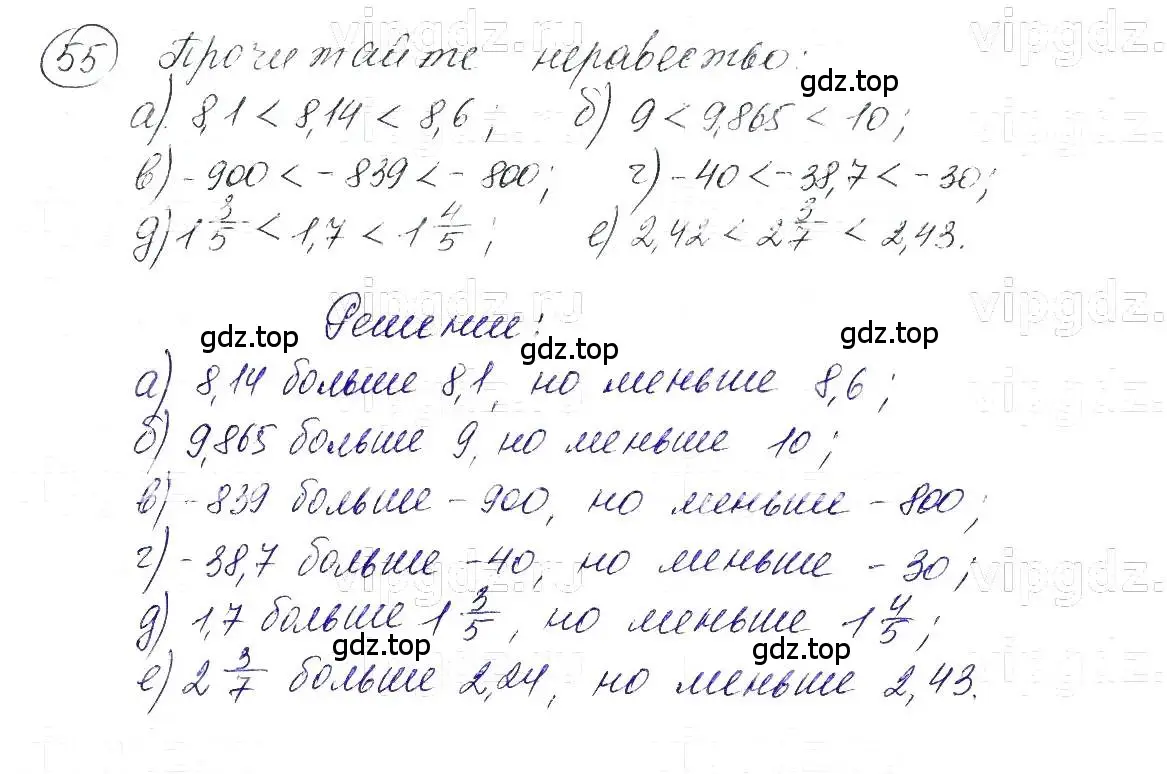 vipgdz.ru vipgdz.ru
55 Прочитайте неравество:
gdz.top gdz.top
а) 8,1 < 8,14 < 8,6; б) 9 < 9,865 < 10;
в) -900 < -839 < -800; г) -40 < -38,7 < -30;
д) 1 3/5 < 1,7 < 1 4/5; е) 2,42 < 2 3/7 < 2,43.
vipgdz.ru vipgdz.ru
Решение:
gdz.top gdz.top gdz.top
а) 8,14 больше 8,1, но меньше 8,6;
б) 9,865 больше 9, но меньше 10;
в) -839 больше -900, но меньше -800;
г) -38,7 больше -40, но меньше -30;
vipgdz.ru vipgdz.ru
д) 1,7 больше 1 3/5, но меньше 1 4/5;
gdz.top gdz.top
е) 2 3/7 больше 2,24, но меньше 2,43.